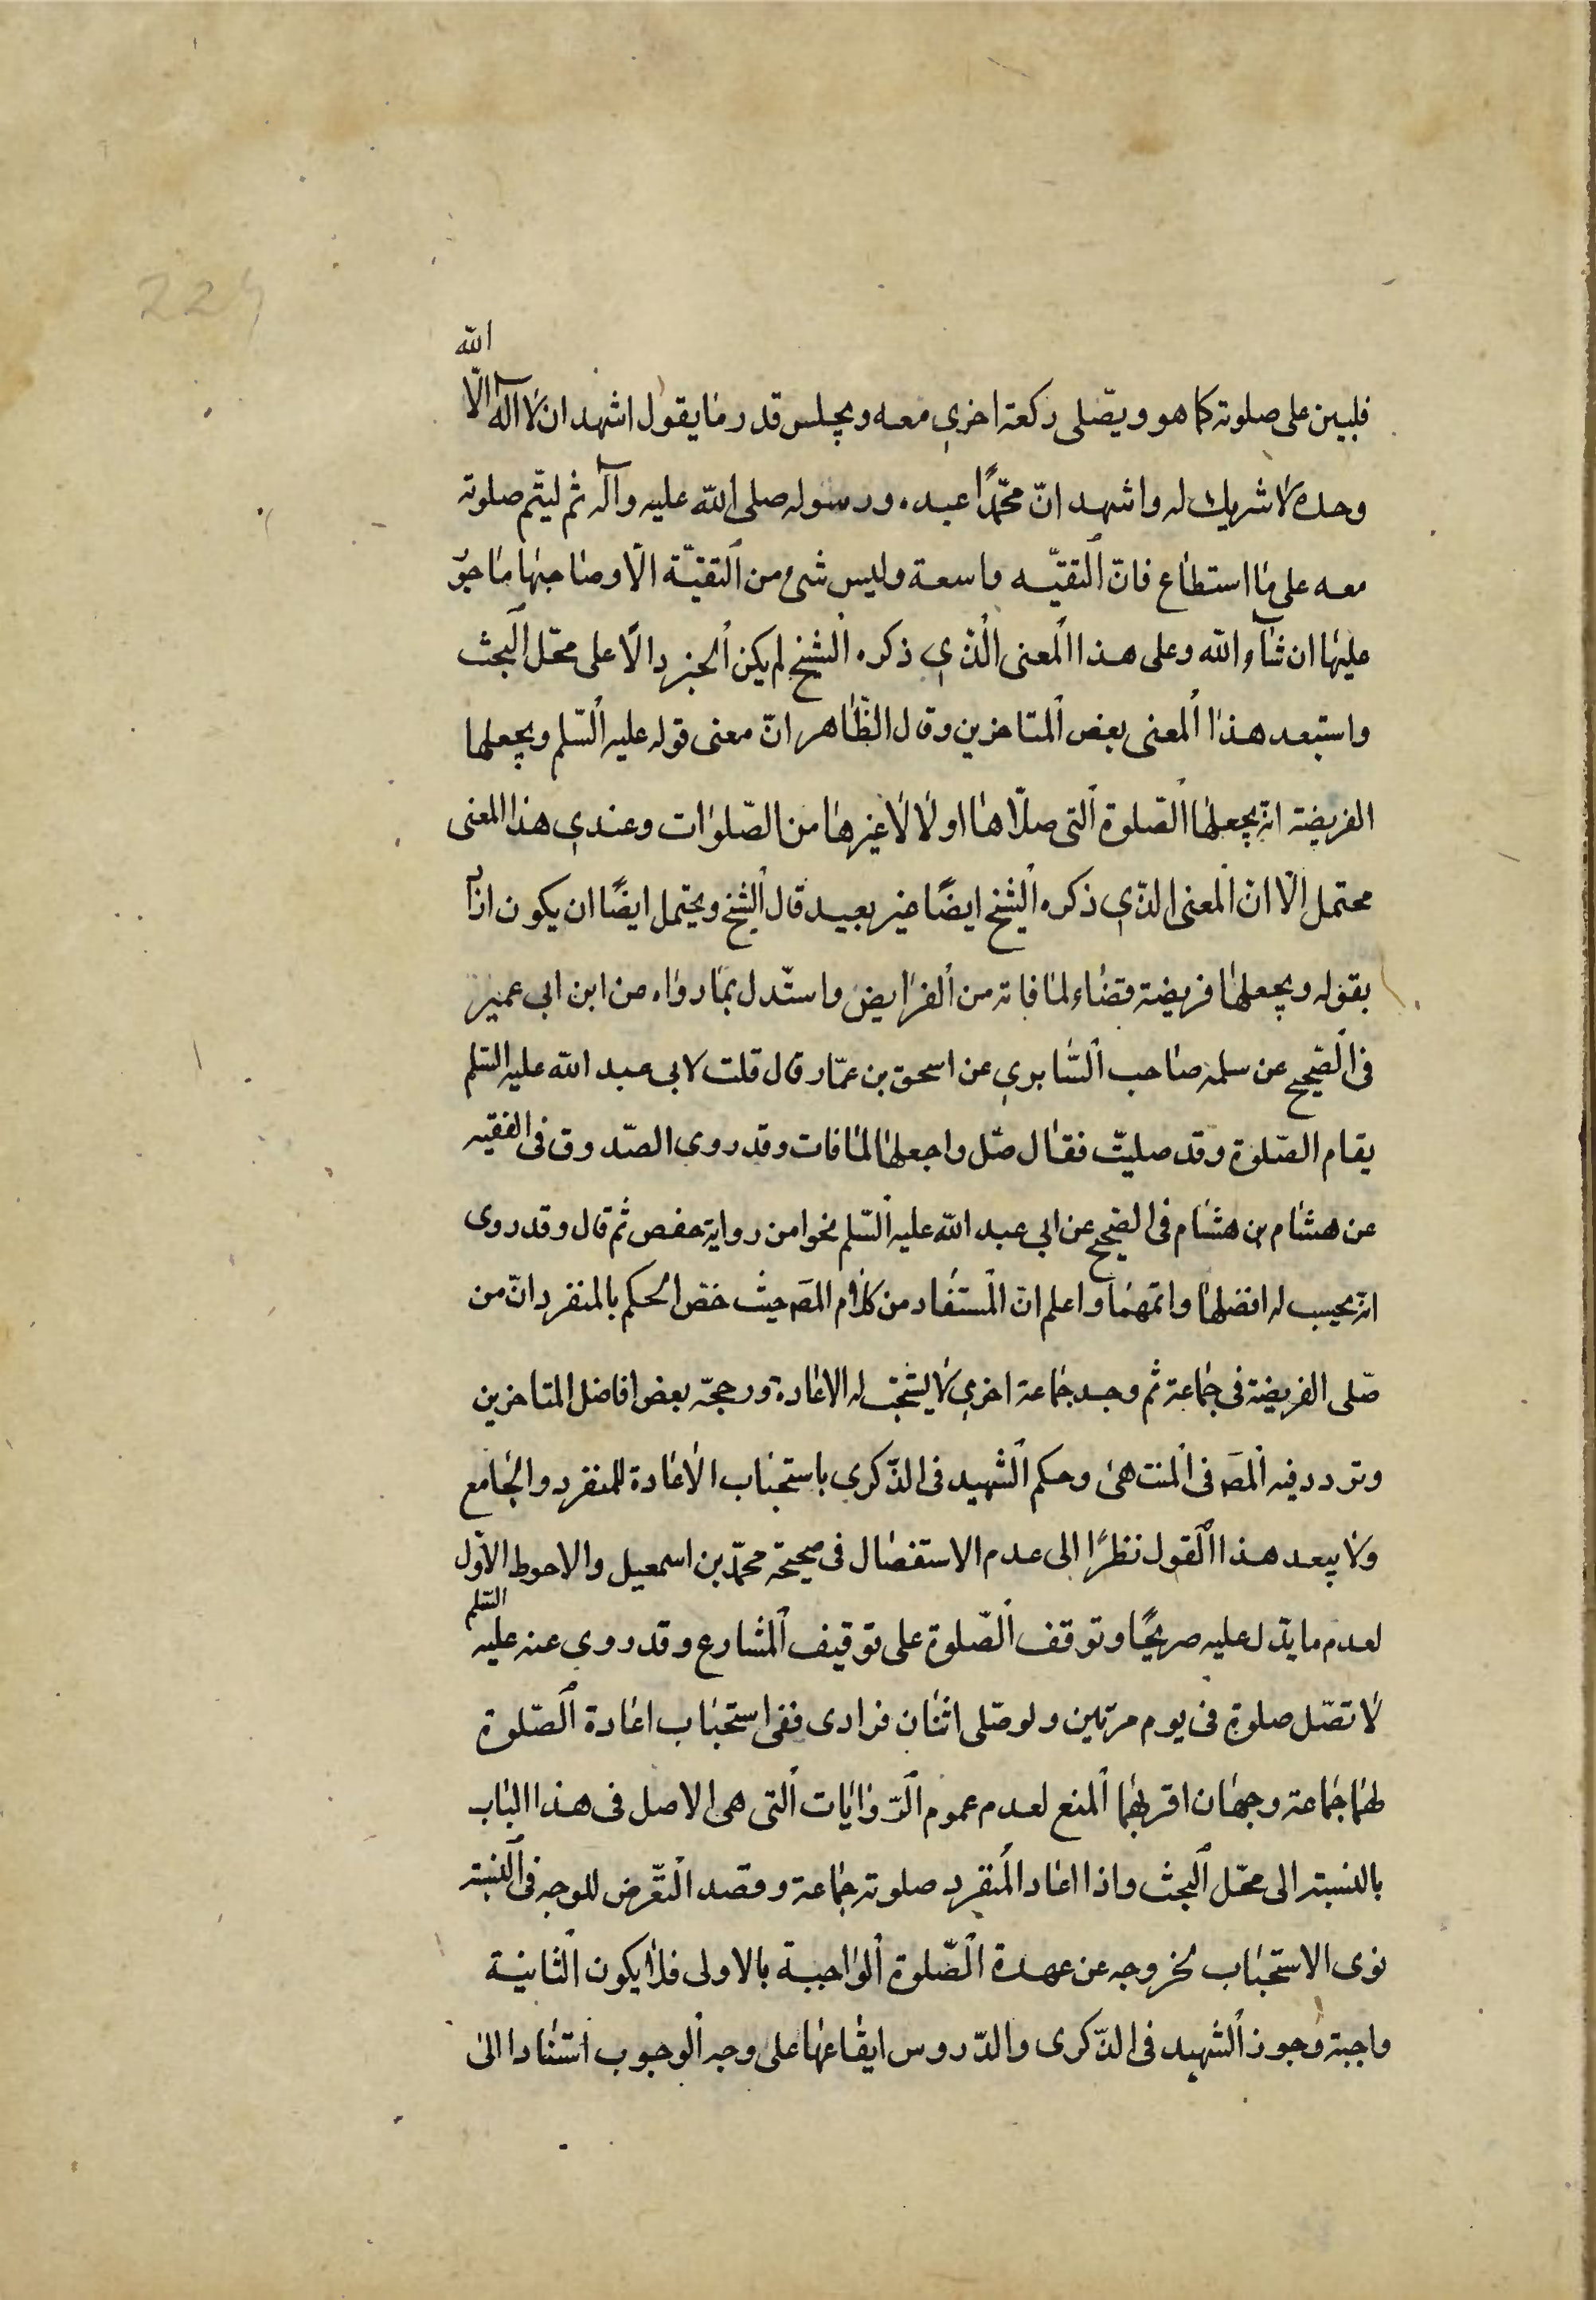 224
الله
فليبن على صلوته كما هو ويصّلى ركعة اخرى معه ويجلس قدر ما يقول اشهد ان لا اله الّا
وحده لا شريك له واشهد انّ محمّدًا عبده ورسوله صلى الله عليه وآله ثم ليتّم صلوته
معه على ما استطاع فانّ التقيّه واسعة وليس شئ من التقيّة الّا وصاحبها ماجوٌ
عليها ان شآء الله وعلى هذا المعنى الّذي ذكره الشيخ لم يكن الخبر دالًا على محّل البحث
واستبعد هذا المعنى بعض المتاخرين وقال الظّاهر انّ معنى قوله عليه السّلم ويجعلها
الفريضة انّه يجعلها الصّلوة التى صلّاها اولا لا غيرها من الصّلوات وعندي هذا المعنى
محتمل الّا انّ المعنى الذّي ذكره الشيخ ايضًا غير بعيد قال الشيخ ويحتمل ايضًا ان يكون اذا
بقوله ويجعلها فريضة قضاء لما فاته من الفرايض واستّدل بما رواه عن ابن ابى عمير
فى الصّحيح عن سلمه صاحب السّابري عن اسحق بن عمّار قال قلت لابى عبد الله عليه السّلم
يقام الصّلوة وقد صليتّ فقال صّل واجعلها لما فات وقد روى الصّدوق فى الفقيه
عن هشام بن هشام فى الصّحيح عن ابى عبد الله عليه السّلم نحوا من رواية حفص ثم قال وقد روى
انّه يحسب له افضلهما واتمهما واعلم انّ المستفاد من كلام المصَ حيث خصّ الحكم بالمنفرد انّ من
صّلى الفريضة فى جماعة ثم وجد جماعة اخرى لا يستحّب له الاعادة ورجحّه بعض افاضل المتاخرين
وتردد فيه المصَ فى المنتهى وحكم الشهيد فى الذّكرى باستحباب الاعادة للمنفرد والجامع
ولا يبعد هذا القول نظرًا الى عدم الاستفصال فى صحيحة محمّد بن اسمعيل والاحوط الاوّل
لعدم ما يدّل عليه صريحًا وتوقف الصّلوة على توقيف الشارع وقد روى عنه عليه السّلم
لا تصّل صلوة فى يوم مرتين ولو صّلى اثنان فرادى ففى استحباب اعادة الصّلوة
لهما جماعة وجهان اقربهما المنع لعدم عموم الرّوايات التى هى الاصل فى هذا الباب
بالنسبة الى محّل البحث واذا اعاد المنفرد صلوته جماعة وقصد التّعرض للوجه فى النيّة
نوى الاستحباب لخروجه عن عهدة الصّلوة الواجبة بالاولى فلا يكون الثانية
واجبة وجوز الشهيد فى الذّكرى والدّروس ايقاعها على وجه الوجوب استنادا الى